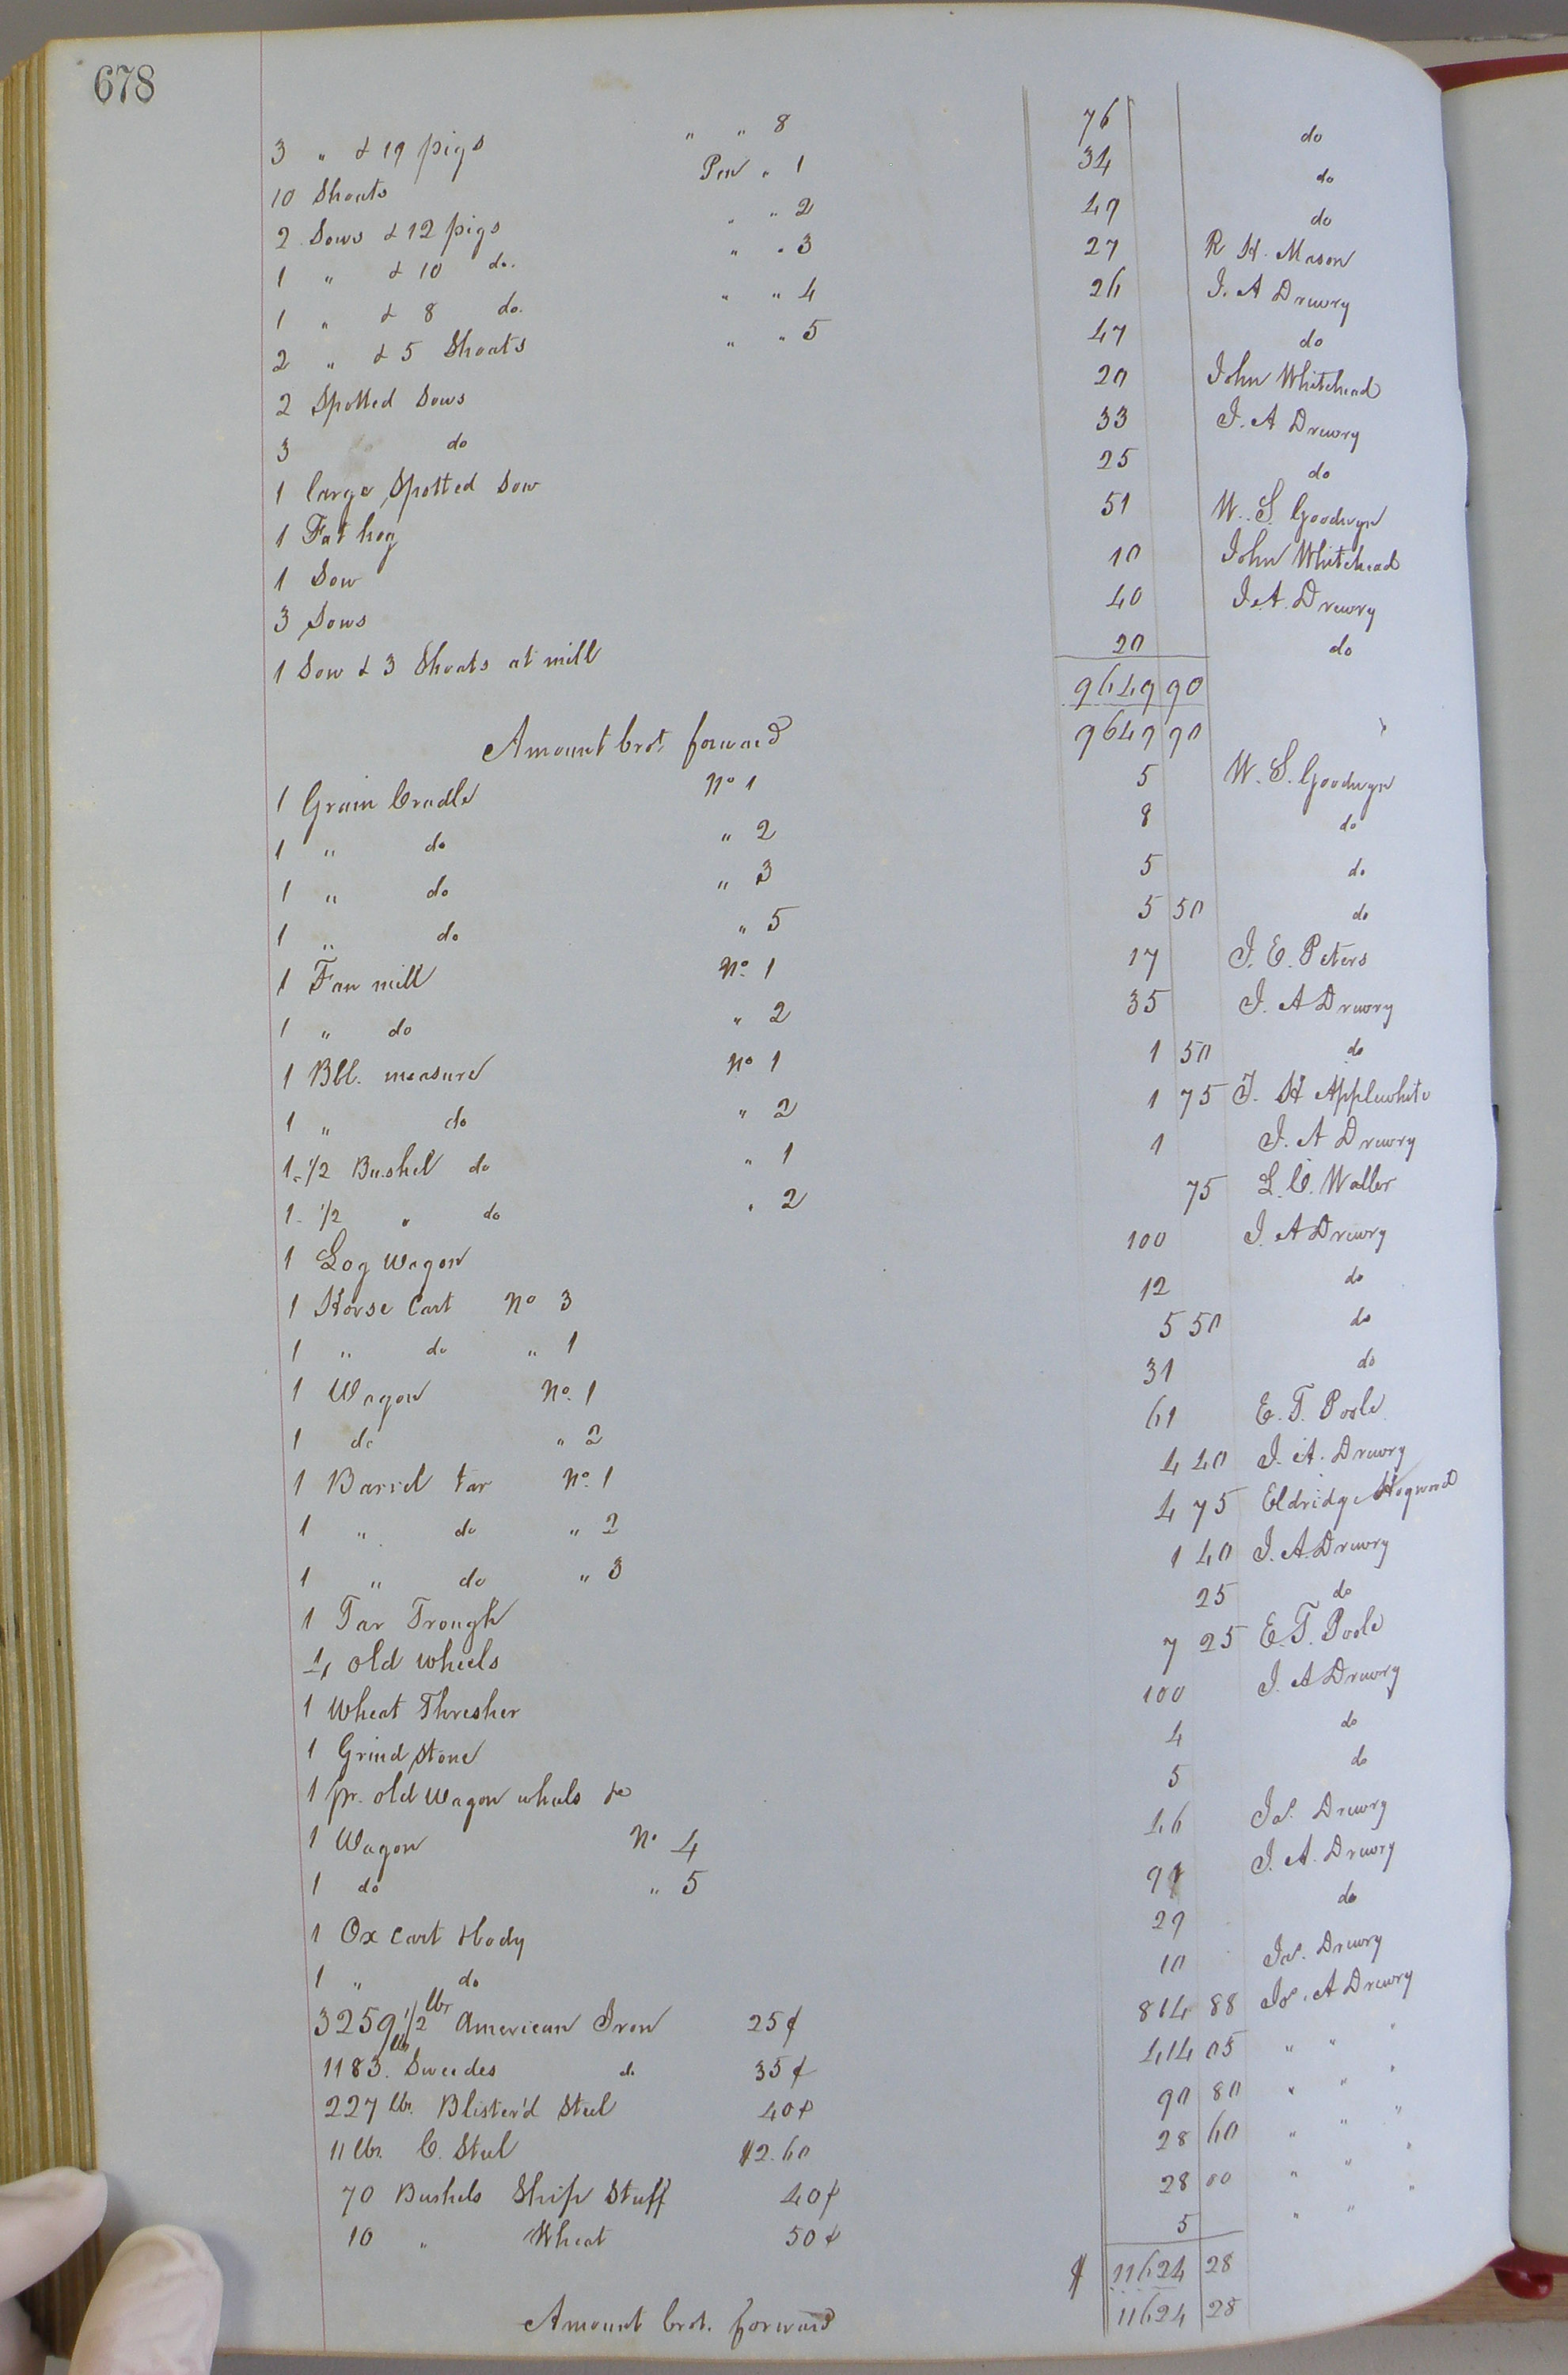 678
3 " & 19 pigs " " 8 76 do
10 Shoats Pen " 1 34 do
2 Sows & 12 pigs " " 2 49 do
1 " & 10 do. " " 3 27 R H. Mason
1 " & 8 do. " " 4 26 J. A Drewry
2 " & 5 Shoats " " 5 47 do
2 Spotted Sows 20 John Whitehead
3 do 33 J. A Drewry
1 large Spotted Sow 25 do
1 Fat hog 51 W. S. Goodwyn
1 Sow 10 John Whitehead
3 Sows 40 J. A. Drewry
1 Sow & 3 Shoats at mill 20 do
9649 90
Amount brot. forward 9649 90
1 Grain Cradle No 1 5 W. S. Goodwyn
1 " do " 2 8 do
1 " do " 3 5 do
1 " do " 5 5 50 do
1 Fan mill No. 1 17 J. E. Peters
1 " do " 2 35 J. A Drewry
1 Bbl. measure No 1 1 50 do
1 " do " 2 1 75 J. H Applewhite
1 - 1/2 Bushel do " 1 1 J. A Drewry
1 - 1/2 " do " 2 75 L. C. Waller
1 Log Wagon 100 J. A Drewry
1 Horse Cart No 3 12 do
1 " do " 1 5 50 do
1 Wagon No. 1 31 do
1 do " 2 61 E. T. Poole
1 Barrel Tar No. 1 4 40 J. A. Drewry
1 " do " 2 4 75 Eldridge Hogwood
1 " do " 3 1 40 J. A. Drewry
1 Tar Trough 25 do
4 old wheels 7 25 E. T. Poole
1 Wheat Thresher 100 J. A Drewry
1 Grind Stone 4 do
1 pr. old Wagon wheels &c 5 do
1 Wagon No 4 46 Jas. Drewry
1 do " 5 91 J. A. Drewry
1 Ox Cart & body 29 do
1 " do 10 Jas. Drewry
3259 1/2 lbs American Iron 25¢ 814 88 Js. A Drewry
1183. lbs Sweedes do 35¢ 414 05 " " "
227 lbs. Blister'd Steel 40¢ 90 80 " " "
11 lbs. C. Steel $2.60 28 60 " " "
70 Bushels Ship Stuff 40¢ 28 00 " " "
10 " Wheat 50¢ 5 " " "
$ 11624 28
Amount brot. forward 11624 28